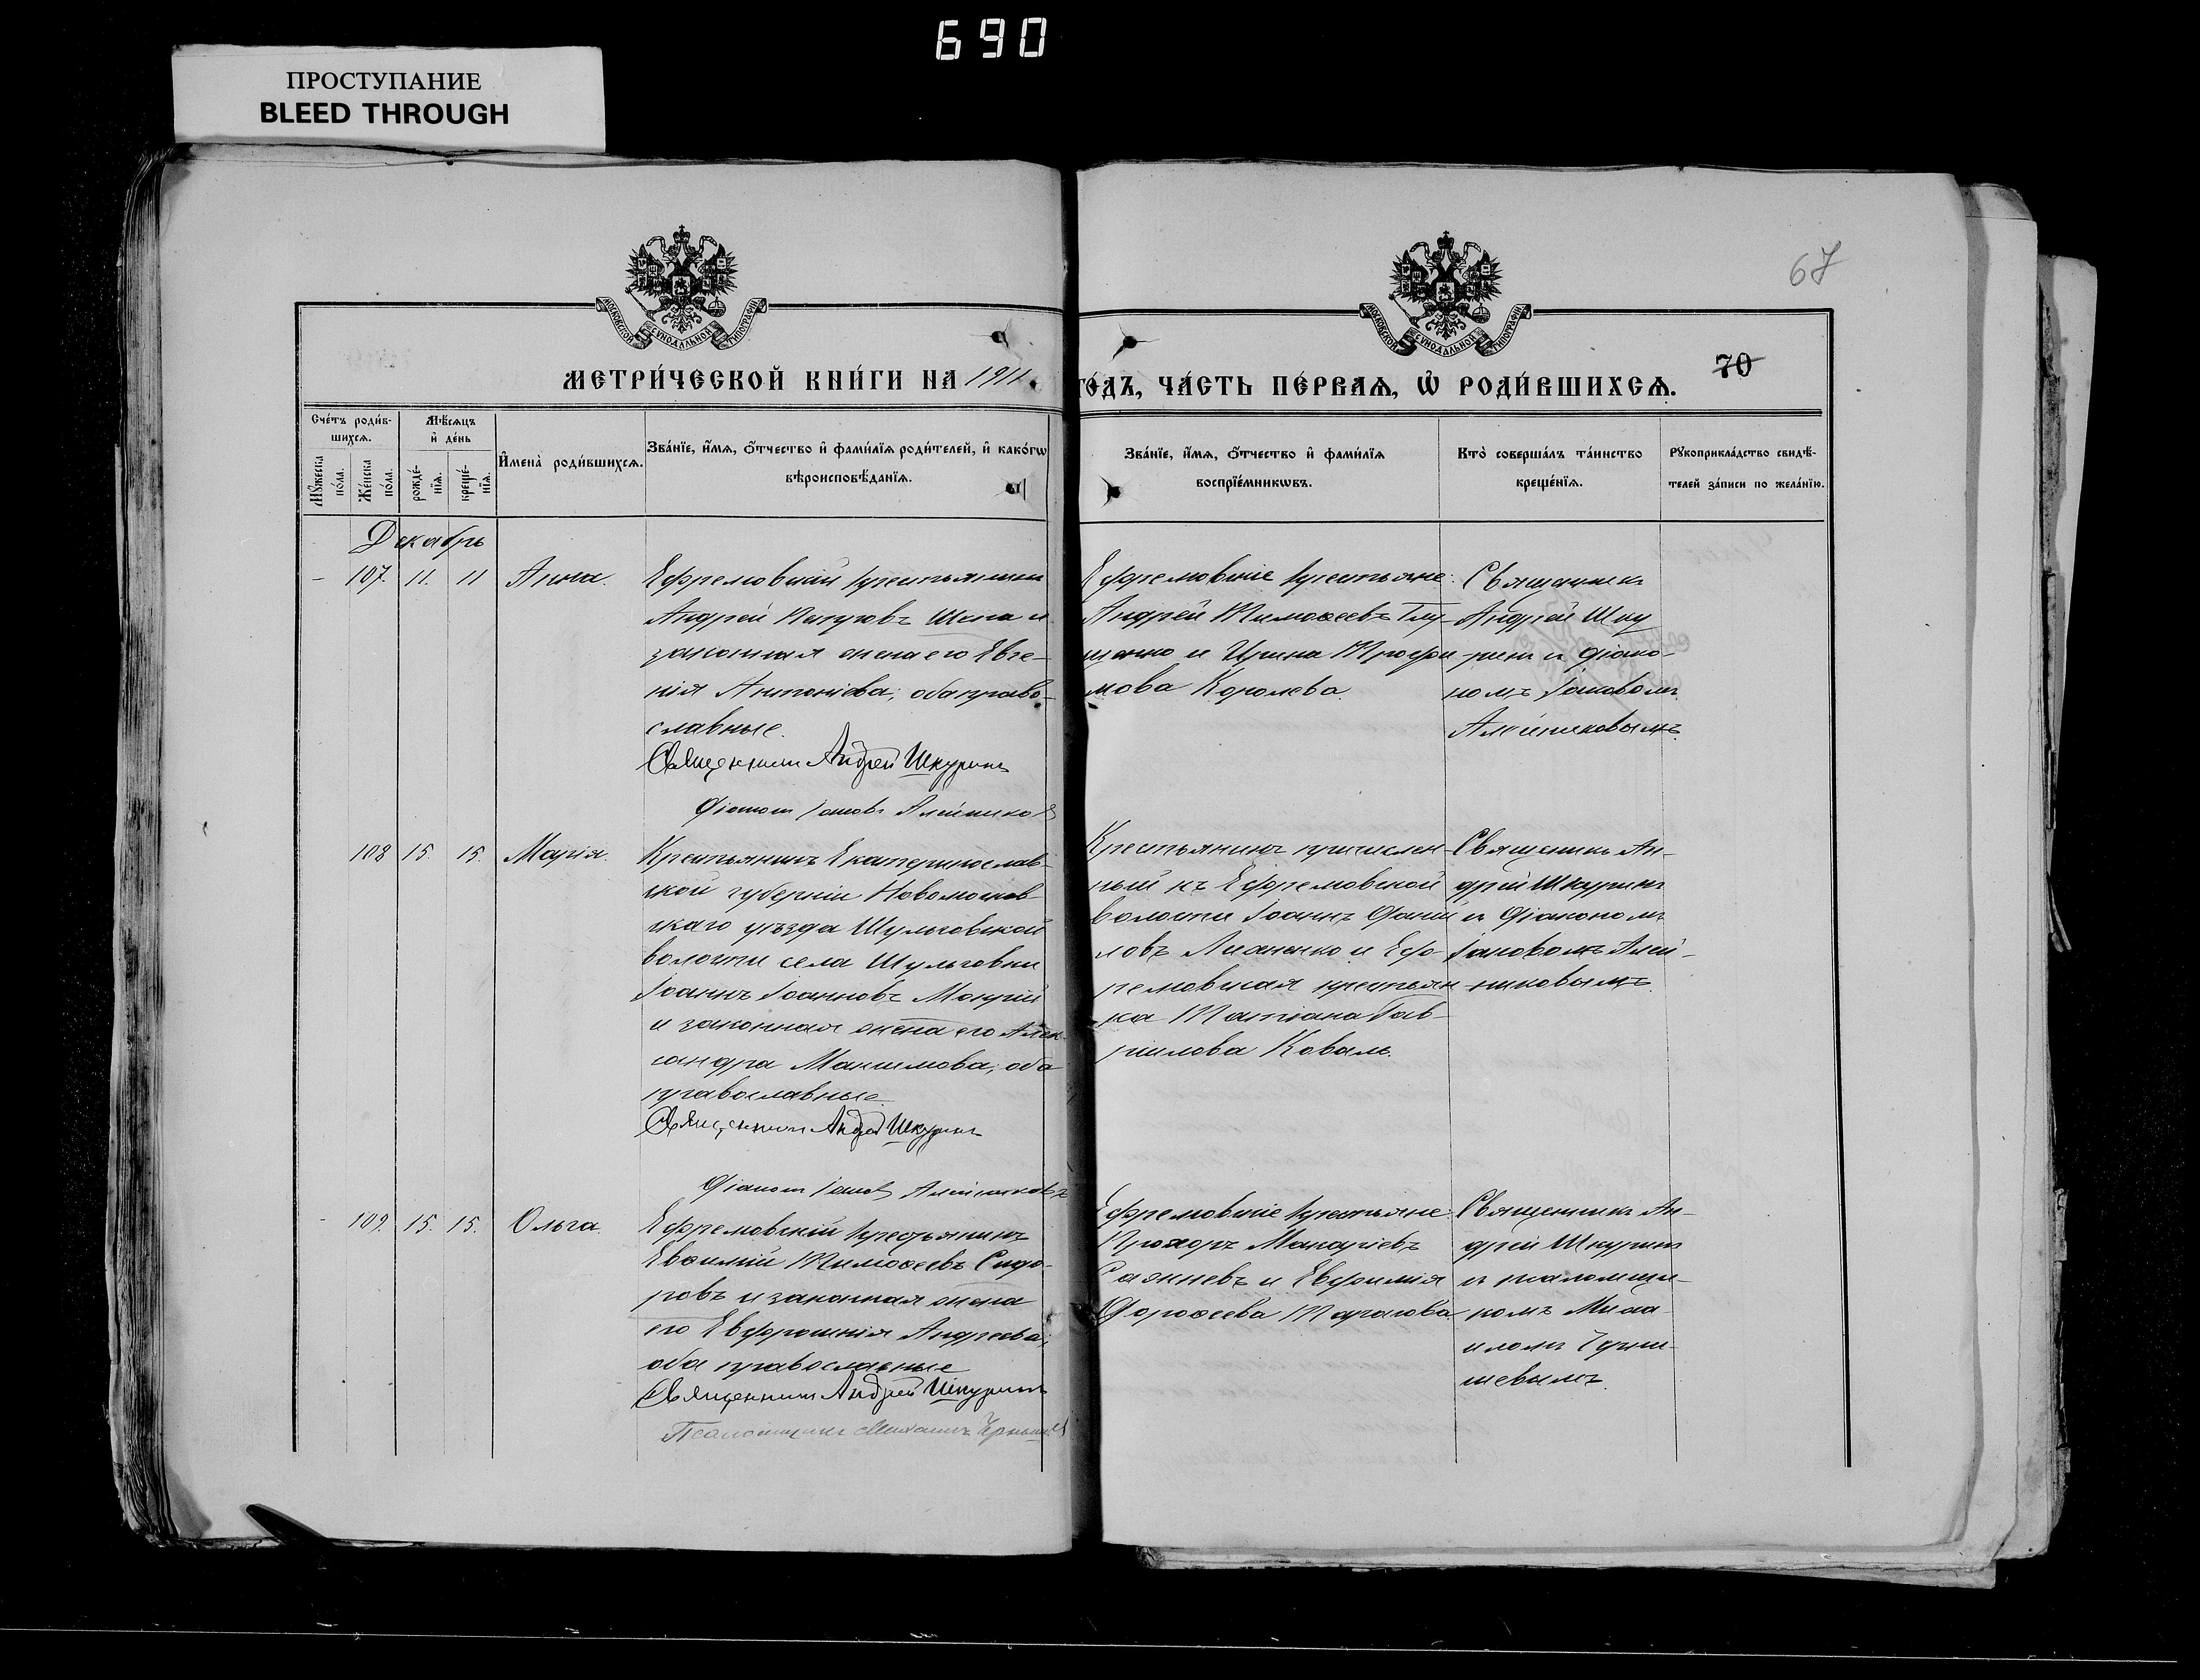 690
ПРОСТУПАНИЕ
BLEED THROUGH
67
МОСКОВСКОЙ СѴНОДАЛЬНОЙ ТИПОГРАФІИ
МОСКОВСКОЙ СѴНОДАЛЬНОЙ ТИПОГРАФІИ
70
МЕТРИ́ЧЕСКОЙ КНИ́ГИ НА 1911
ГО́ДЪ, ЧА́СТЬ ПЕ́РВАѦ, Ѡ҆ РОДИ́ВШИХСѦ.
Сче́тъ роди́в-
шихсѧ.
Мꙋ́жеска по́ла.
Же́нска по́ла.
Мѣ́сѧцъ
и҆ де́нь
рожде́-
нїѧ.
креще́-
нїѧ.
И҆мена̀ роди́вшихсѧ.
Зва́нїе, и҆́мѧ, ѻ҆́тчество и҆ фами́лїѧ роди́телей, и҆ како́гѡ
вѣроисповѣ́данїѧ.
Зва́нїе, и҆́мѧ, ѻ҆́тчество и҆ фами́лїѧ
воспрїе́мникѡвъ.
Кто̀ соверша́лъ та́инство
креще́нїѧ.
Рꙋкоприкла́дство свидѣ́-
телей за́писи по жела́нїю.
Декабрь
– 107. 11. 11 Анна.
Ефремовскій крестьянинъ
Андрей Петровъ Шепа и
законная жена его Евге-
нія Антоніева; оба право-
славные.
Священникъ Андрей Шкуринъ
Діаконъ Іаковъ Алейников
Ефремовскіе крестьяне:
Андрей Тимоѳеевъ Глу-
щенко и Ирина Трофи
мова Королева.
Священникъ
Андрей Шку
ринъ и діако-
номъ Іаковомъ
Алейниковымъ.
108 15. 15. Марія.
Крестьянинъ Екатеринослав-
ской губерніи Новомосков-
скаго уѣзда Шульговской
волости села Шульговки
Іоаннъ Іоанновъ Мокрій
и законная жена его Алек-
сандра Максимова; оба
православные.
Священникъ Андрей Шкуринъ
Діаконъ Іаковъ Алейниковъ
Крестьянинъ причислен-
ный къ Ефремовской
волости Іоаннъ Даніи
ловъ Лисаненко и Еф-
ремовская крестьян-
ка Татіана Гав-
риилова Коваль.
Священникъ Ан-
дрей Шкуринъ
и Діаконом
Іаковомъ Алей-
никовымъ.
- 109. 15. 15. Ольга.
Ефремовскій крестьянинъ
Евѳимій Тимоѳеевъ Сидо-
ровъ и законная жена
его Евфросинія Андреева;
оба православные
Священникъ Андрей Шкуринъ
Псаломщикъ Михаилъ Чернышев
Ефремовскіе крестьяне:
Прохоръ Макаріевъ
и Евфимія
Дороѳеева Тарасова.
Священникъ Ан-
дрей Шкурин
и псаломщи-
комъ Миха
иломъ Черны-
шевымъ.